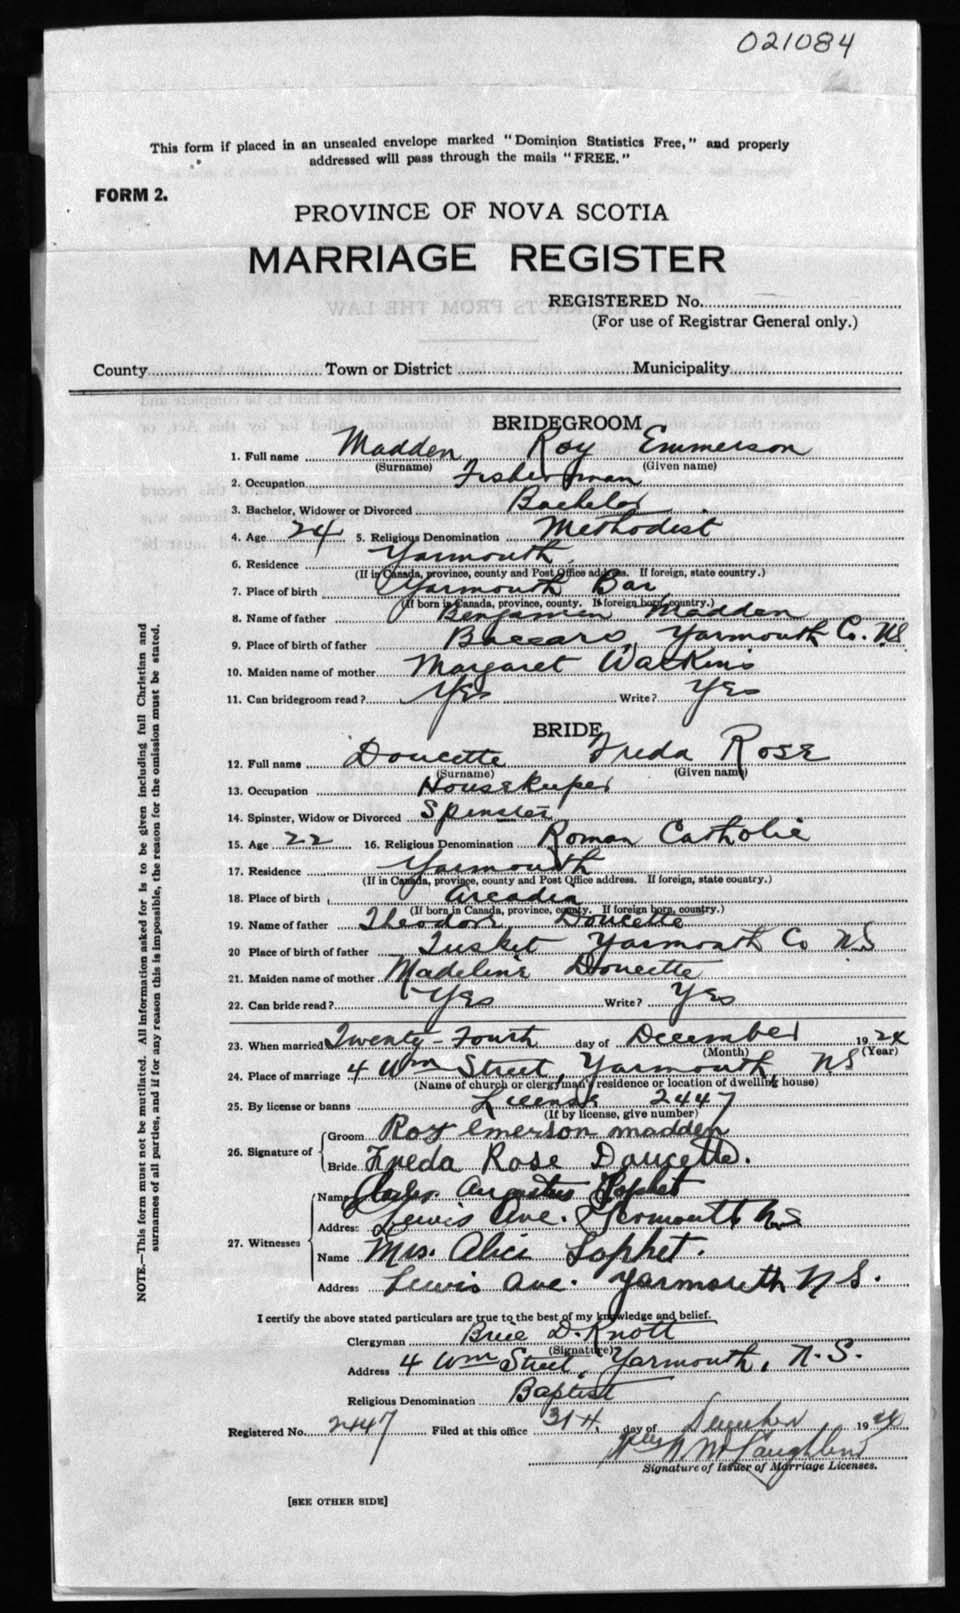 021084
This form if placed in an unsealed envelope marked "Dominion Statistics Free," and properly
addressed will pass through the mails "FREE."
FORM 2.
PROVINCE OF NOVA SCOTIA
MARRIAGE REGISTER
REGISTERED No.
(For use of Registrar General only.)
County Town or District Municipality
BRIDEGROOM
1. Full name Madden Roy Emmerson
(Surname) (Given name)
2. Occupation Fisherman
3. Bachelor, Widower or Divorced Bachelor
4. Age 24 5. Religious Denomination Methodist
6. Residence Yarmouth
(If in Canada, province, county and Post Office address. If foreign, state country.)
7. Place of birth Yarmouth Bar
(If born in Canada, province, county. If foreign born, country.)
8. Name of father Benjamin Madden
9. Place of birth of father Baccaro, Yarmouth Co. NS
10. Maiden name of mother Margaret Watkins
11. Can bridegroom read? Yes Write? Yes
BRIDE
12. Full name Doucette Freda Rose
(Surname) (Given name)
13. Occupation Housekeeper
14. Spinster, Widow or Divorced Spinster
15. Age 22 16. Religious Denomination Roman Catholic
17. Residence Yarmouth
(If in Canada, province, county and Post Office address. If foreign, state country.)
18. Place of birth Arcadia
(If born in Canada, province, county. If foreign born, country.)
19. Name of father Theodore Doucette
20 Place of birth of father Tusket Yarmouth Co NS
21. Maiden name of mother Madeline Doucette
22. Can bride read? Yes Write? Yes
23. When married Twenty-Fourth day of December 1924
(Month) (Year)
24. Place of marriage 4 Wm Street, Yarmouth, NS
(Name of church or clergyman's residence or location of dwelling house)
25. By license or banns License 2447
(If by license, give number)
26. Signature of Groom Roy Emerson Madden
Bride Freda Rose Doucette.
27. Witnesses Name Augustus
Address Lewis Ave. Yarmouth N.S
Name Mrs. Alice
Address Lewis Ave. Yarmouth N S.
I certify the above stated particulars are true to the best of my knowledge and belief.
Clergyman Brice D. Knott
(Signature)
Address 4 Wm Street, Yarmouth, N.S.
Religious Denomination Baptist
Registered No. 2447 Filed at this office 31st. day of December 1924
Signature of Issuer of Marriage Licenses.
[SEE OTHER SIDE]
NOTE.—This form must not be mutilated. All information asked for is to be given including full Christian and
surnames of all parties, and if for any reason this is impossible, the reason for the omission must be stated.